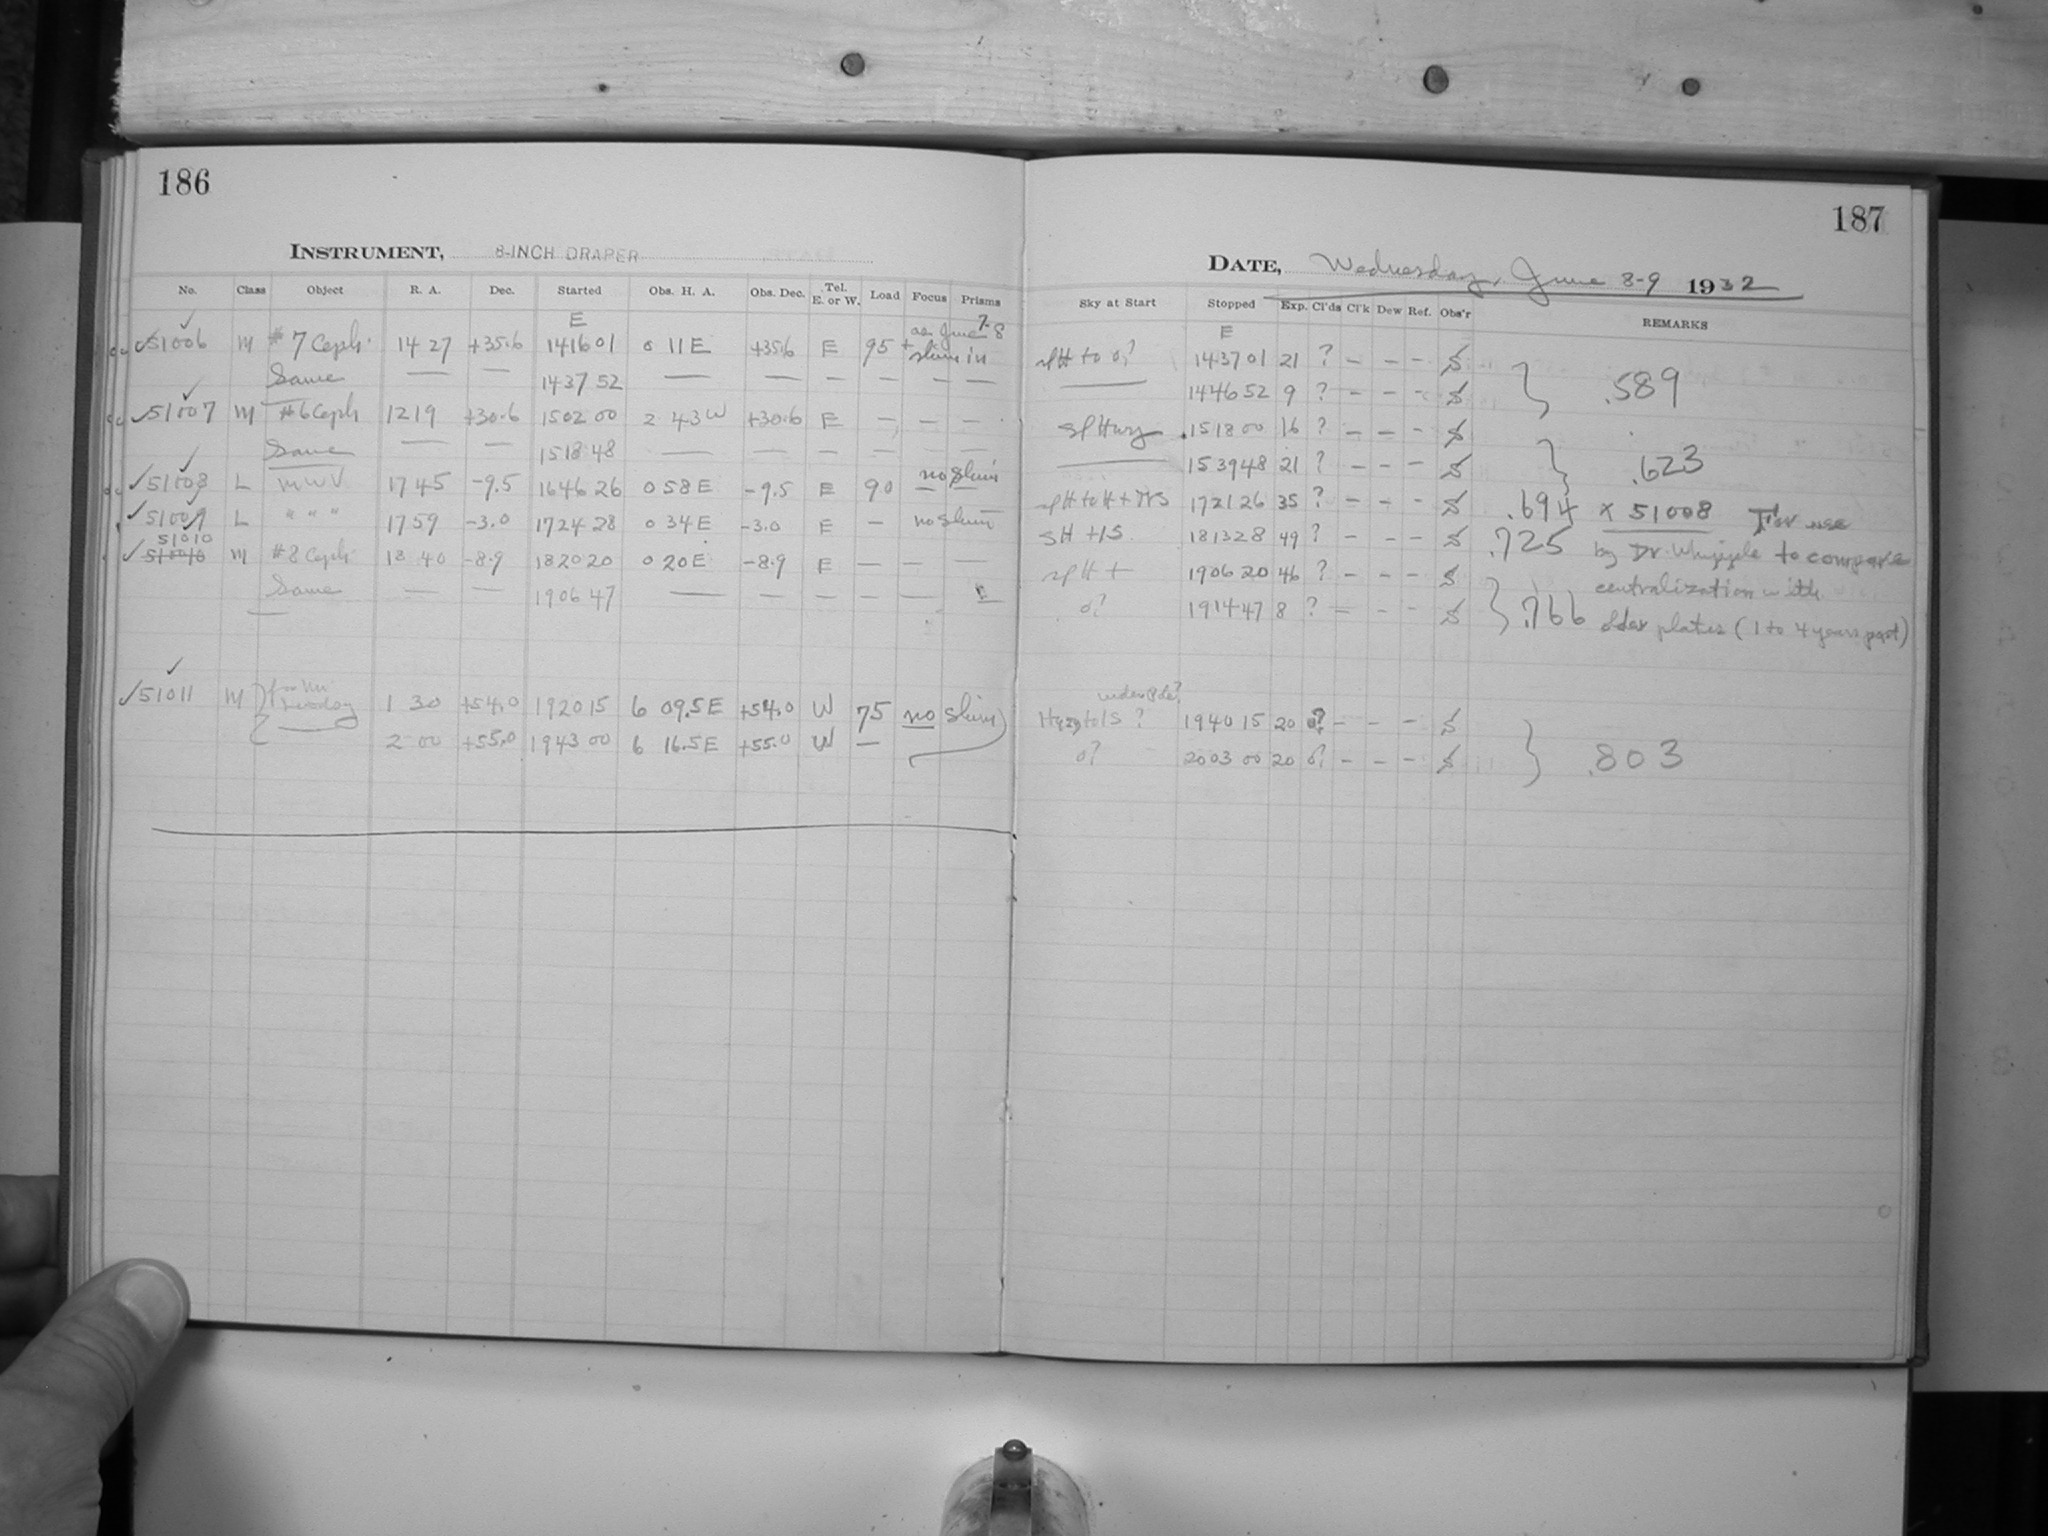 186
INSTRUMENT, 8-INCH DRAPER
No. Class Object R. A. Dec. Started Obs. H. A. Obs. Dec. Tel. E. or W. Load Focus Prisms
E
51006 M #7 Ceph. 14 27 +35.6 14 16 01 0 11 E +35.6 E 95 + as June 7-8 shim in
Same — — 14 37 52 — — — — — —
51007 M #6 Ceph 12 19 +30.6 15 02 00 2 43 W +30.6 E — — —
Same — — 15 18 48 — — — — — —
51008 L MWV 17 45 -9.5 16 46 26 0 58 E -9.5 E 90 no shim
51009 L " " " 17 59 -3.0 17 24 28 0 34 E -3.0 E — no shim
51010 M #8 Ceph. 18 40 -8.9 18 20 20 0 20 E -8.9 E — — —
Same — — 19 06 47 — — — — — —
51011 M for Mr. 1 30 +54.0 19 20 15 6 09.5 E +54.0 W 75 no shim
2 00 +55.0 19 43 00 6 16.5 E +55.0 W —
187
DATE, Wednesday, June 8-9 1932
Sky at Start Stopped Exp. Cl'ds Cl'k Dew Ref. Obs'r REMARKS
E
spH to 0? 14 37 01 21 ? — — — S
— 14 46 52 9 ? — — — S .589
spH 15 18 00 16 ? — — — S
— 15 39 48 21 ? — — — S .623
spH to H + 17 21 26 35 ? — — — S .694 x 51008 For use
SH + 1S 18 13 28 49 ? — — — S .725 by Dr. Whipple to compare
spH + 19 06 20 46 ? — — — S centralization with
0? 19 14 47 8 ? — — — S .766 older plates (1 to 4 years past)
H to 1S ? 19 40 15 20 0? — — — S
0? 20 03 00 20 0? — — — S .803